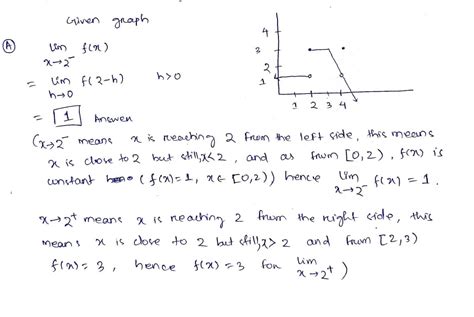 Given graph
Ⓐ lim f(x)
x→2⁻
= lim f(2-h) h>0
h→0
= 1 Answer
(x→2⁻ means x is reaching 2 from the left side, this means
x is close to 2 but still, x<2, and as from [0,2), f(x) is
constant (f(x)=1, x∈[0,2)) hence lim f(x) = 1.
x→2⁻
x→2⁺ means x is reaching 2 from the right side, this
means x is close to 2 but still, x>2 and from [2,3)
f(x)=3, hence f(x)=3 for lim )
x→2⁺
4
3
2
1
1 2 3 4